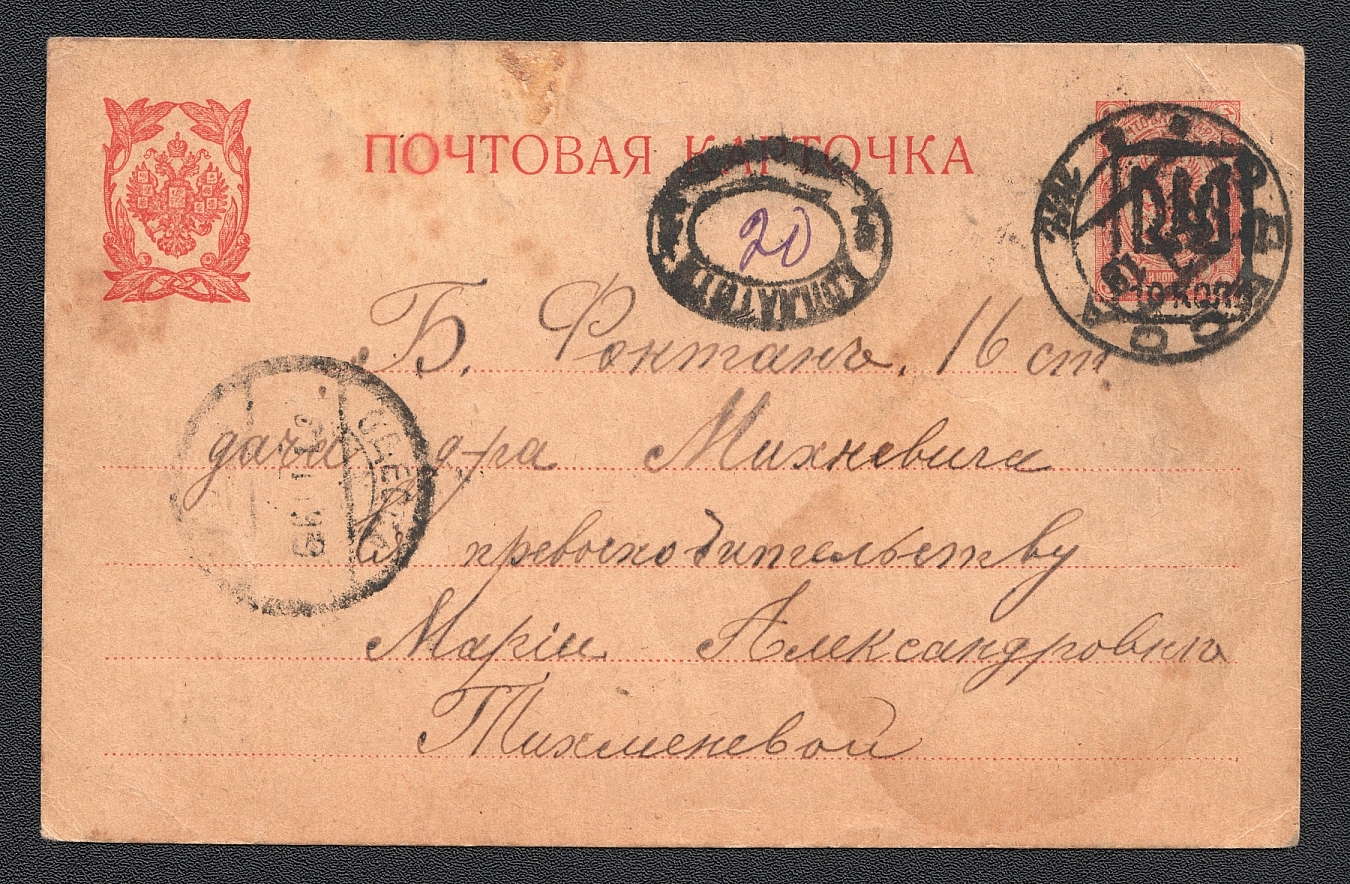 ПОЧТОВАЯ КАРТОЧКА
20
10 КОП.
ОДЕССА
Б. Фонтанъ. 16 ст
дача д-ра Михневича
Ея превосходительству
Маріи Александровнѣ
Тихменевой
ОДЕССА